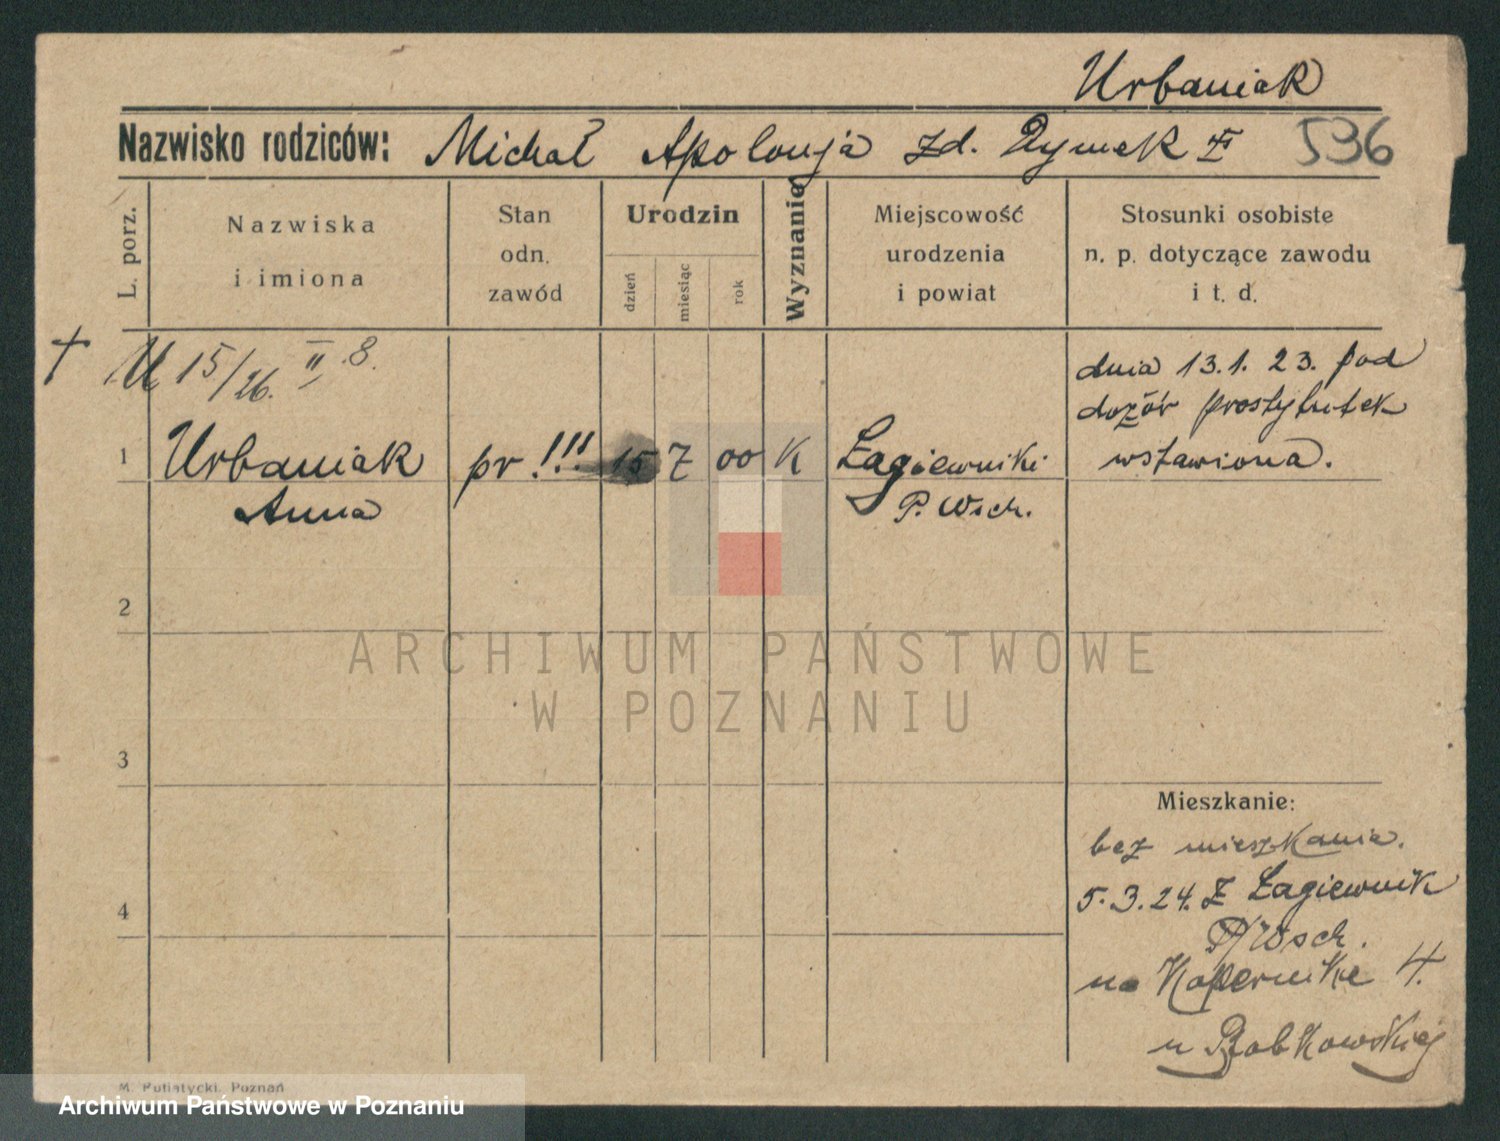 Urbaniak
Nazwisko rodziców: Michał Apolonja zd. Dymek 536
L. porz.
Nazwiska i imiona
Stan odn. zawód
Urodzin
dzień
miesiąc
rok
Wyznanie
Miejscowość urodzenia i powiat
Stosunki osobiste n. p. dotyczące zawodu i t. d.
† U 15/26. II 8.
dnia 13.1.23. pod
dozór prostytutek
wstawiona.
1 Urbaniak pr!!! 15 7 00 K Łagiewniki
Anna P. Wsch.
2
ARCHIWUM PAŃSTWOWE
W POZNANIU
3
Mieszkanie:
bez mieszkania.
4 5.3.24. z Łagiewnik
P/Wsch.
na Kopernika 4.
u Bobkowskiej
M. Putiatycki, Poznań
Archiwum Państwowe w Poznaniu